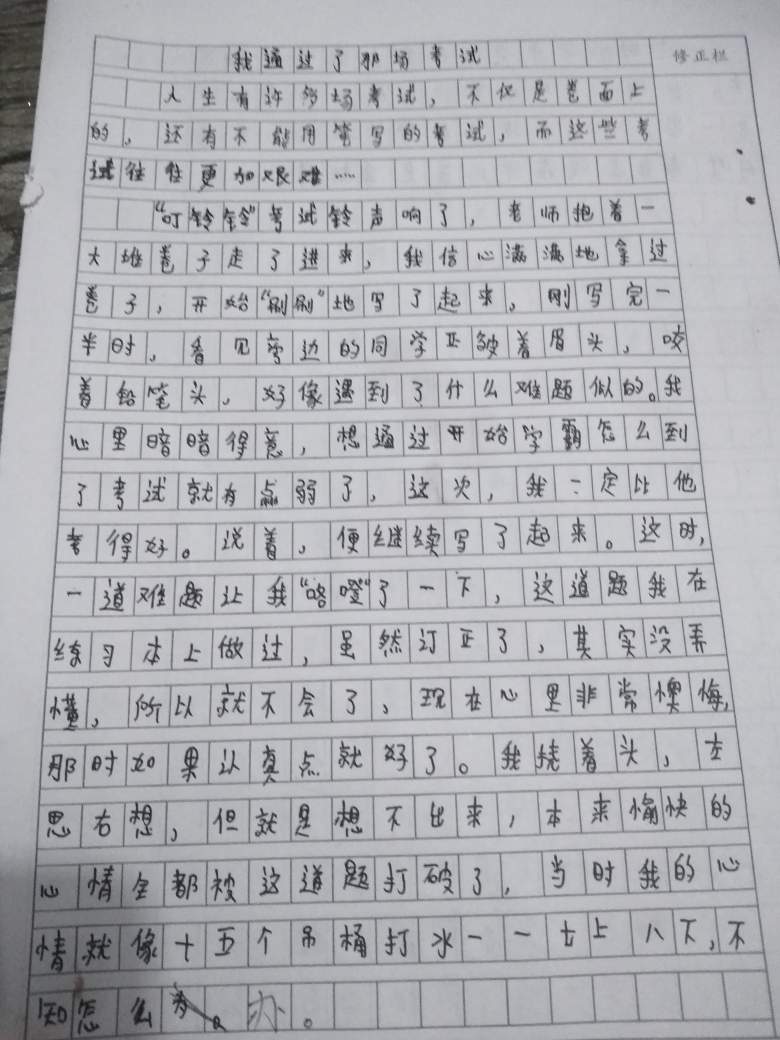 我通过了那场考试
修正栏
人生有许多场考试，不仅是卷面上
的，还有不能用笔写的考试，而这些考
试往往更加艰难……
“叮铃铃”考试铃声响了，老师抱着一
大堆卷子走了进来，我信心满满地拿过
卷子，开始“刷刷”地写了起来，刚写完一
半时，看见旁边的同学正皱着眉头，咬
着铅笔头，好像遇到了什么难题似的。我
心里暗暗得意，想通过开始学霸怎么到
了考试就有点弱了，这次，我一定比他
考得好。说着，便继续写了起来。这时，
一道难题让我“咯噔”了一下，这道题我在
练习本上做过，虽然订正了，其实没弄
懂，所以就不会了，现在心里非常懊悔，
那时如果认真点就好了。我挠着头，左
思右想，但就是想不出来，本来愉快的
心情全都被这道题打破了，当时我的心
情就像十五个吊桶打水一一七上八下，不
知怎么办。